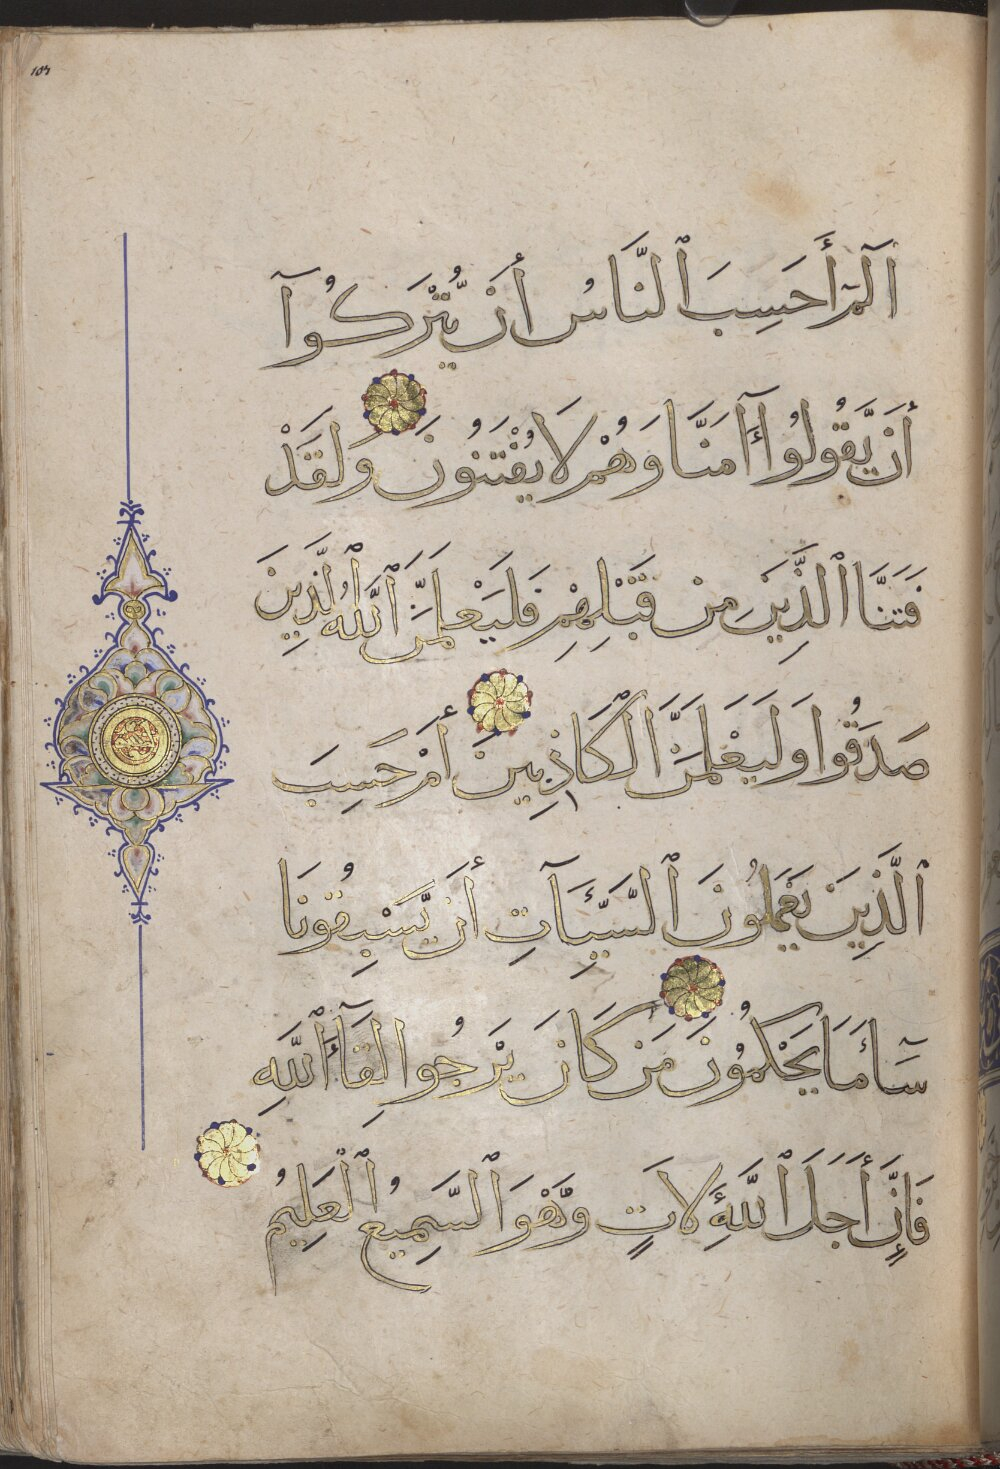 الٓمٓ أَحَسِبَ ٱلنَّاسُ أَن يُّتْرَكُوٓا
أَن يَّقُولُوٓا ءَامَنَّا وَهُمْ لَا يُفْتَنُونَ وَلَقَدْ
فَتَنَّا ٱلَّذِينَ مِن قَبْلِهِمْ فَلَيَعْلَمَنَّ ٱللَّهُ ٱلَّذِينَ
صَدَقُوا وَلَيَعْلَمَنَّ ٱلْكَاذِبِينَ أَمْ حَسِبَ
ٱلَّذِينَ يَعْمَلُونَ ٱلسَّيِّـَٔاتِ أَن يَّسْبِقُونَا
سَآءَ مَا يَحْكُمُونَ مَن كَانَ يَرْجُوا لِقَآءَ ٱللَّهِ
فَإِنَّ أَجَلَ ٱللَّهِ لَـَٔاتٍ وَهْوَ ٱلسَّمِيعُ ٱلْعَلِيمُ